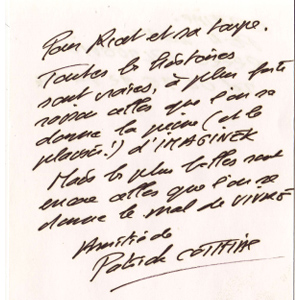 Pour Riat et sa taupe.
Toutes les histoires
sont vraies, à plus forte
raison celles que l'on se
donne la peine (et le
plaisir!) d'IMAGINER
Mais les plus belles sont
encore celles que l'on se
donne le mal de VIVRE
Amitié de
Patrick COTHIAS